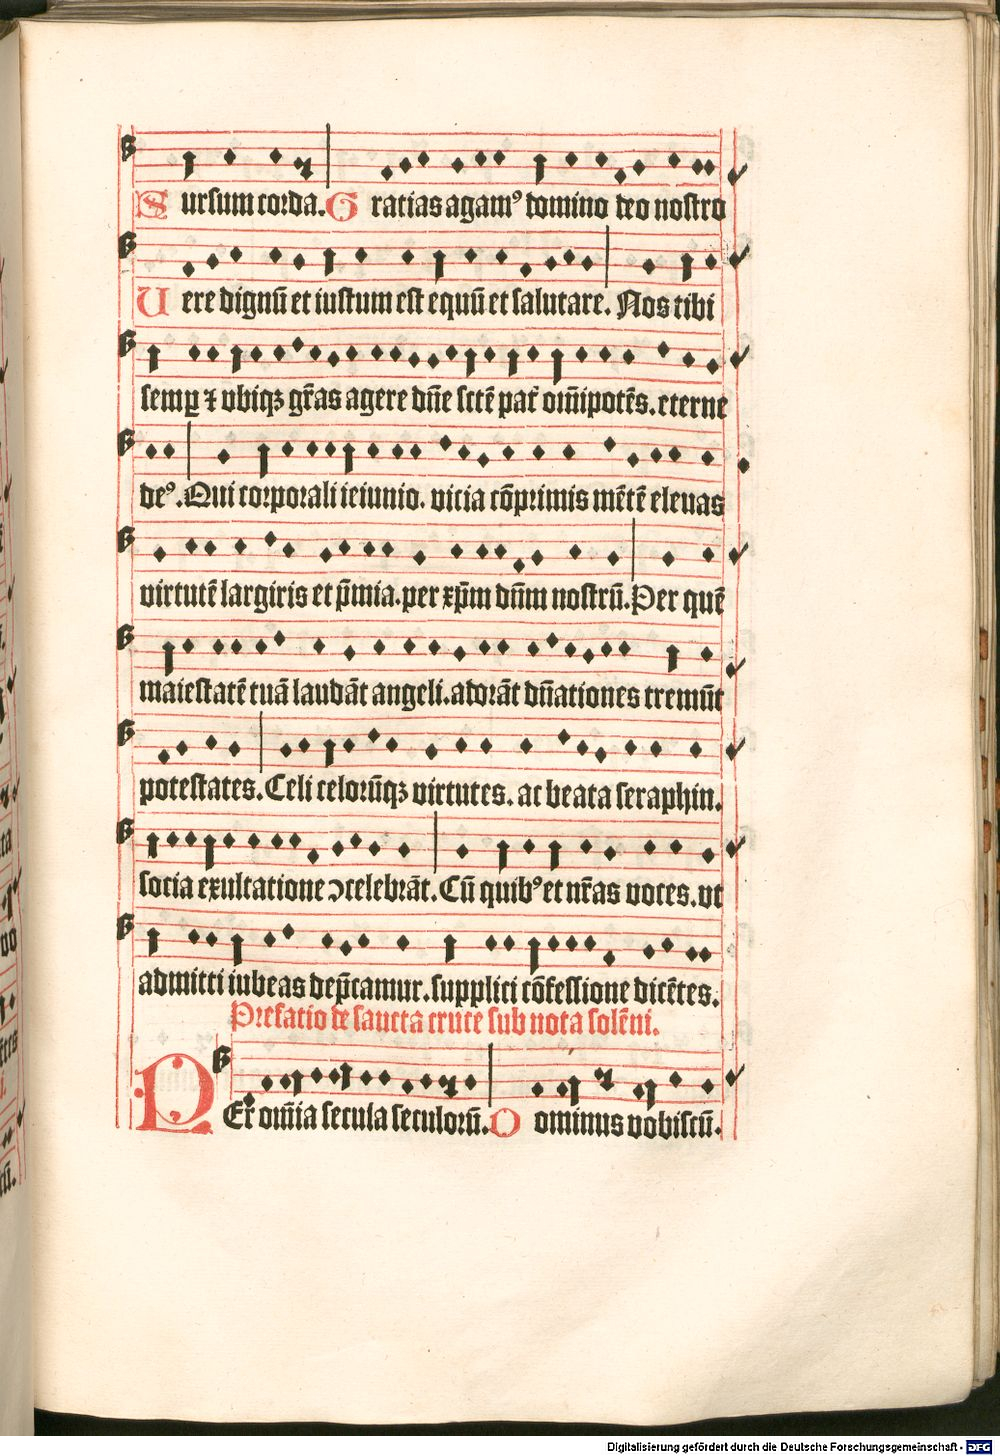 Sursum corda. Gratias agamꝰ domino deo nostro
Uere dignū et iustum est equū et salutare. Nos tibi
semꝑ ⁊ vbiqꝫ gr̄as agere dn̄e sctē pat̄ om̄ipotēs. eterne
deꝰ. Qui corporali ieiunio. vicia cōprimis mētē eleuas
virtutē largiris et p̄mia. per xp̄m dn̄m nostrū. Per quē
maiestatē tuā laudāt angeli. adorāt dn̄ationes tremūt
potestates. Celi celorūqꝫ virtutes. ac beata seraphin.
socia exultatione ↄcelebrāt. Cū quibꝰ et nr̄as voces. vt
admitti iubeas dep̄camur. supplici cōfessione dicētes.
Prefatio de sancta cruce sub nota solēni.
PEr om̄ia secula seculorū. Dominus vobiscū.
Digitalisierung gefördert durch die Deutsche Forschungsgemeinschaft - DFG